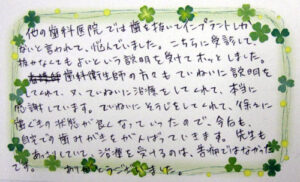 他の歯科医院では歯を抜いてインプラントしか
ないと言われて、悩んでいました。こちらを受診して、
抜かなくてもよいという説明を受けてホッとしました。
歯科衛生士の方もていねいに説明を
してくれて、又、ていねいに治療をしてくれて、本当に
感謝しています。ていねいにそうじをしてくれて、徐々に
歯ぐきの状態が良くなっていったので、今後も、
自宅での歯みがきをがんばっていきます。先生も
あかるしていて、治療を受けるのは、苦痛ではなかった
です。ありがとうございました。